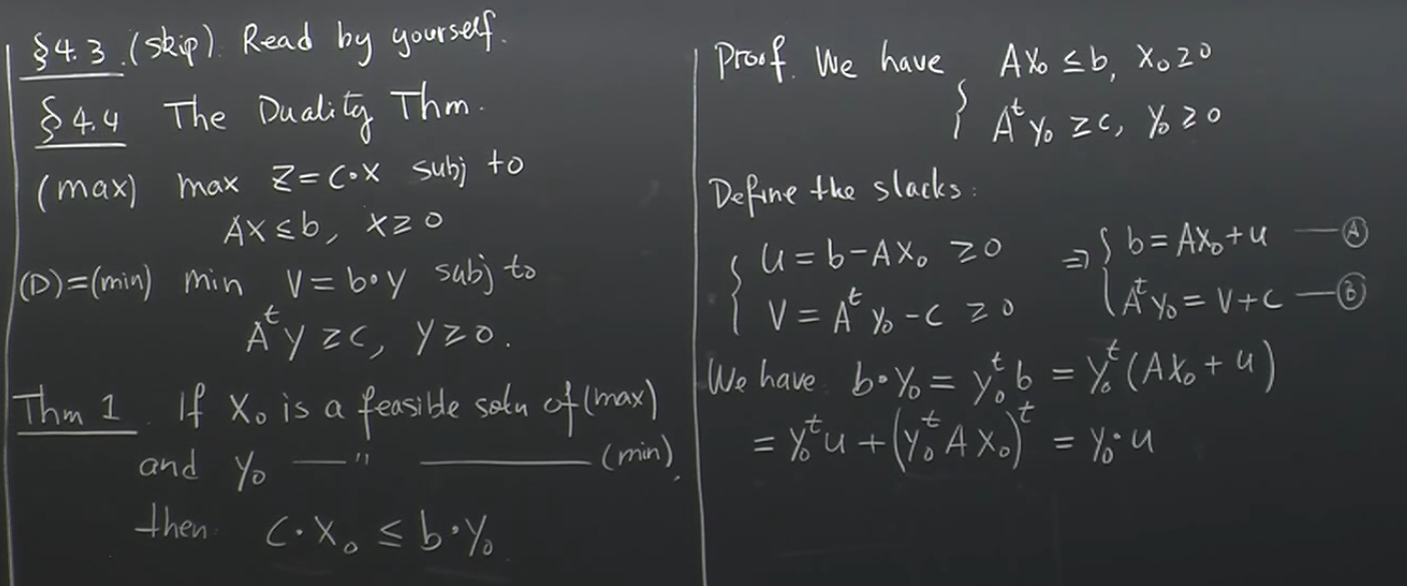 §4.3 (skip). Read by yourself.
§4.4 The Duality Thm.
(max) max Z=C•X subj to
AX≤b, X≥0
(D)=(min) min V=b•y subj to
Aᵗy≥c, y≥0.
Thm 1. If X₀ is a feasible soln of (max)
and y₀ —"— (min),
then C•X₀ ≤ b•y₀
Proof. We have { AX₀≤b, X₀≥0
Aᵗy₀≥c, y₀≥0
Define the slacks:
{ u=b-AX₀ ≥0 ⇒ { b=AX₀+u —Ⓐ
V=Aᵗy₀-c ≥0 Aᵗy₀=V+c —Ⓑ
We have b•y₀ = y₀ᵗb = y₀ᵗ(AX₀+u)
= y₀ᵗu+(y₀ᵗAX₀)ᵗ = y₀•u